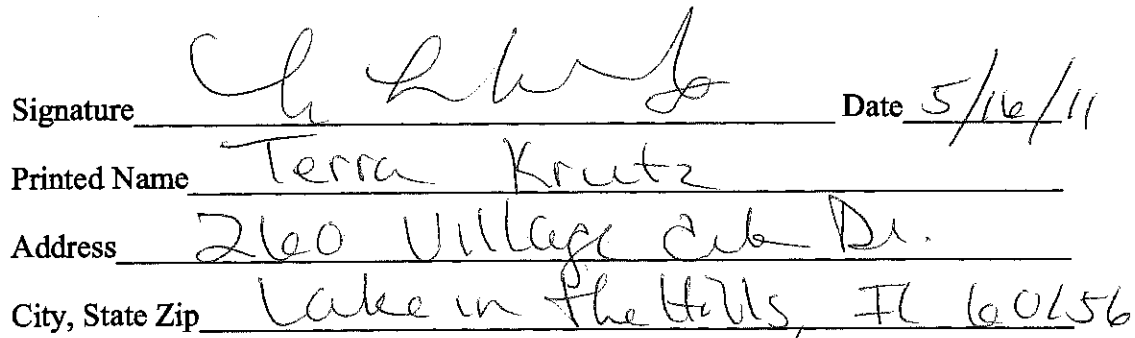 Signature Date 5/16/11
Printed Name Terra Krutz
Address 260 Village Dr.
City, State Zip Lake in the Hills, IL 60156